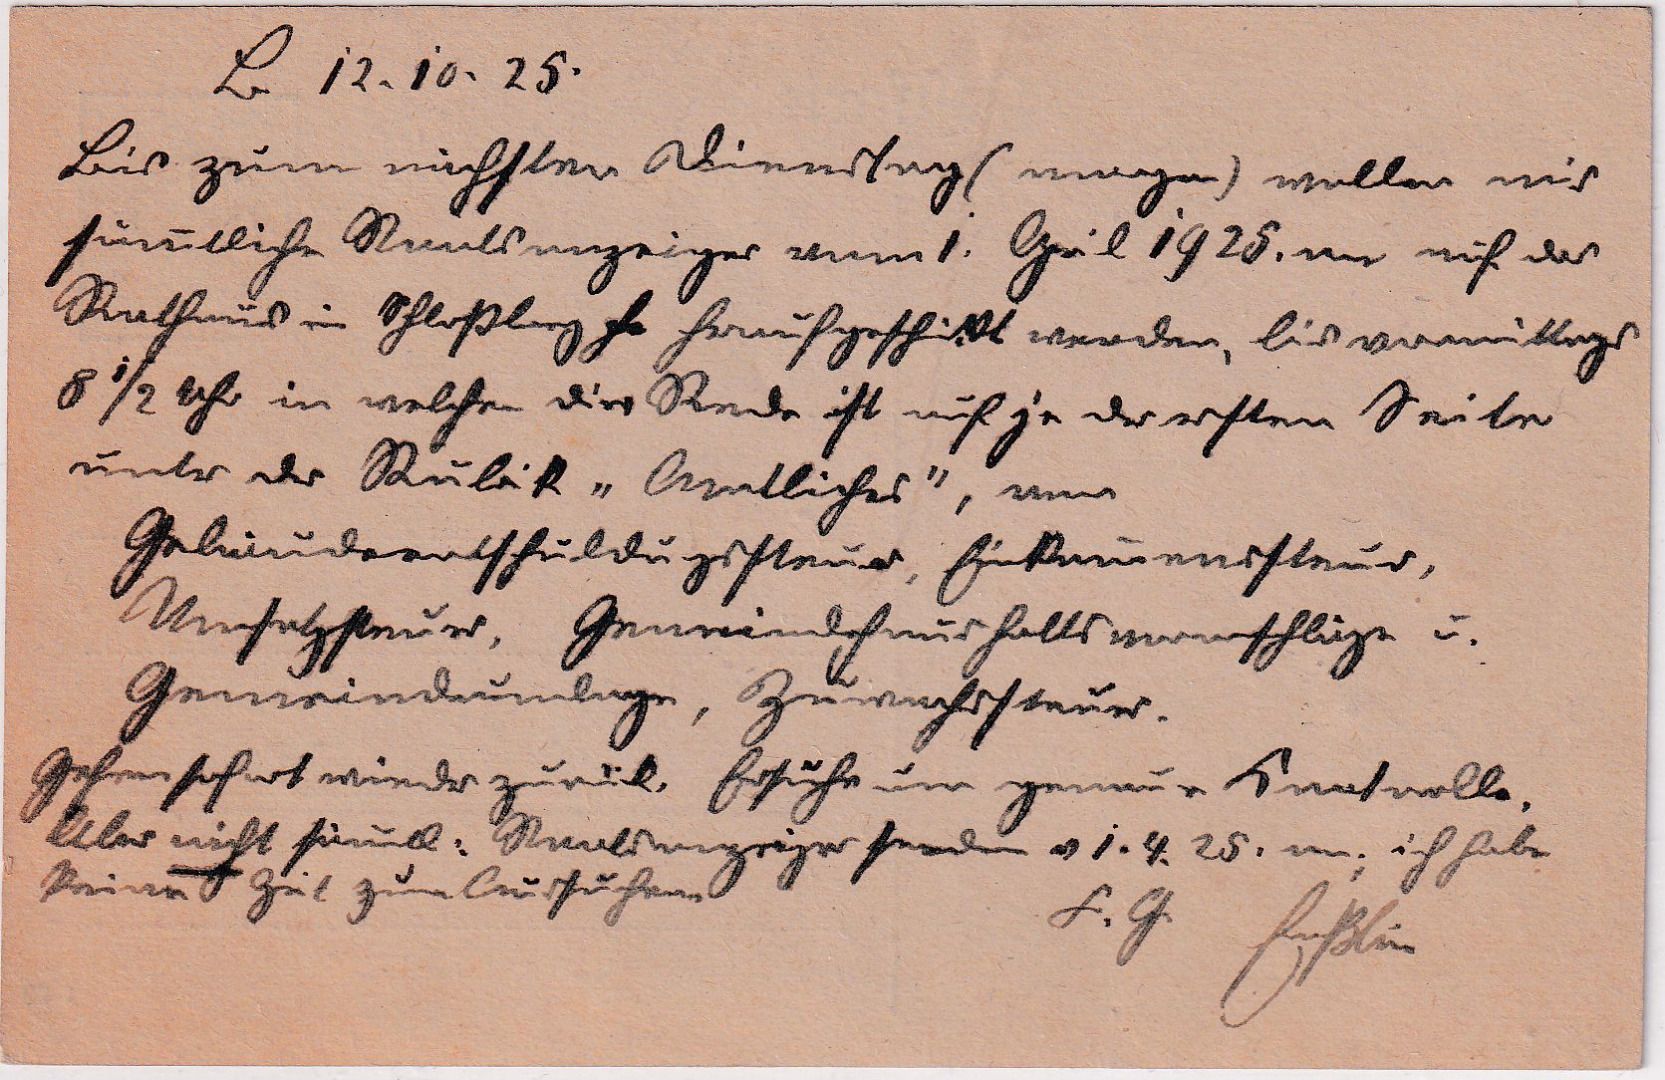 B. 12. 10. 25.
Bis zum nächsten Dienstag (morgen) wollen mir
sämtliche Staatsanzeiger vom 1. April 1925. an auf das
Rathaus in Schloßberg heraufgeschickt werden, bis vormittags
8 1/2 Uhr in welchen die Rede ist auf je der ersten Seite
unter der Rubrik „Amtliches", von
Gebäudeentschuldugssteuer, Einkommenssteuer,
Umsatzsteuer, Gemeindehaushaltsvoranschläge u.
Gemeindeumlage, Zuwachssteuer.
Gehen sofort wieder zurück. Ersuche um genaue Kontrolle.
Aber nicht sämtl: Staatsanzeiger senden v 1. 4. 25. an; ich habe
keine Zeit zum Aussuchen
F. G.